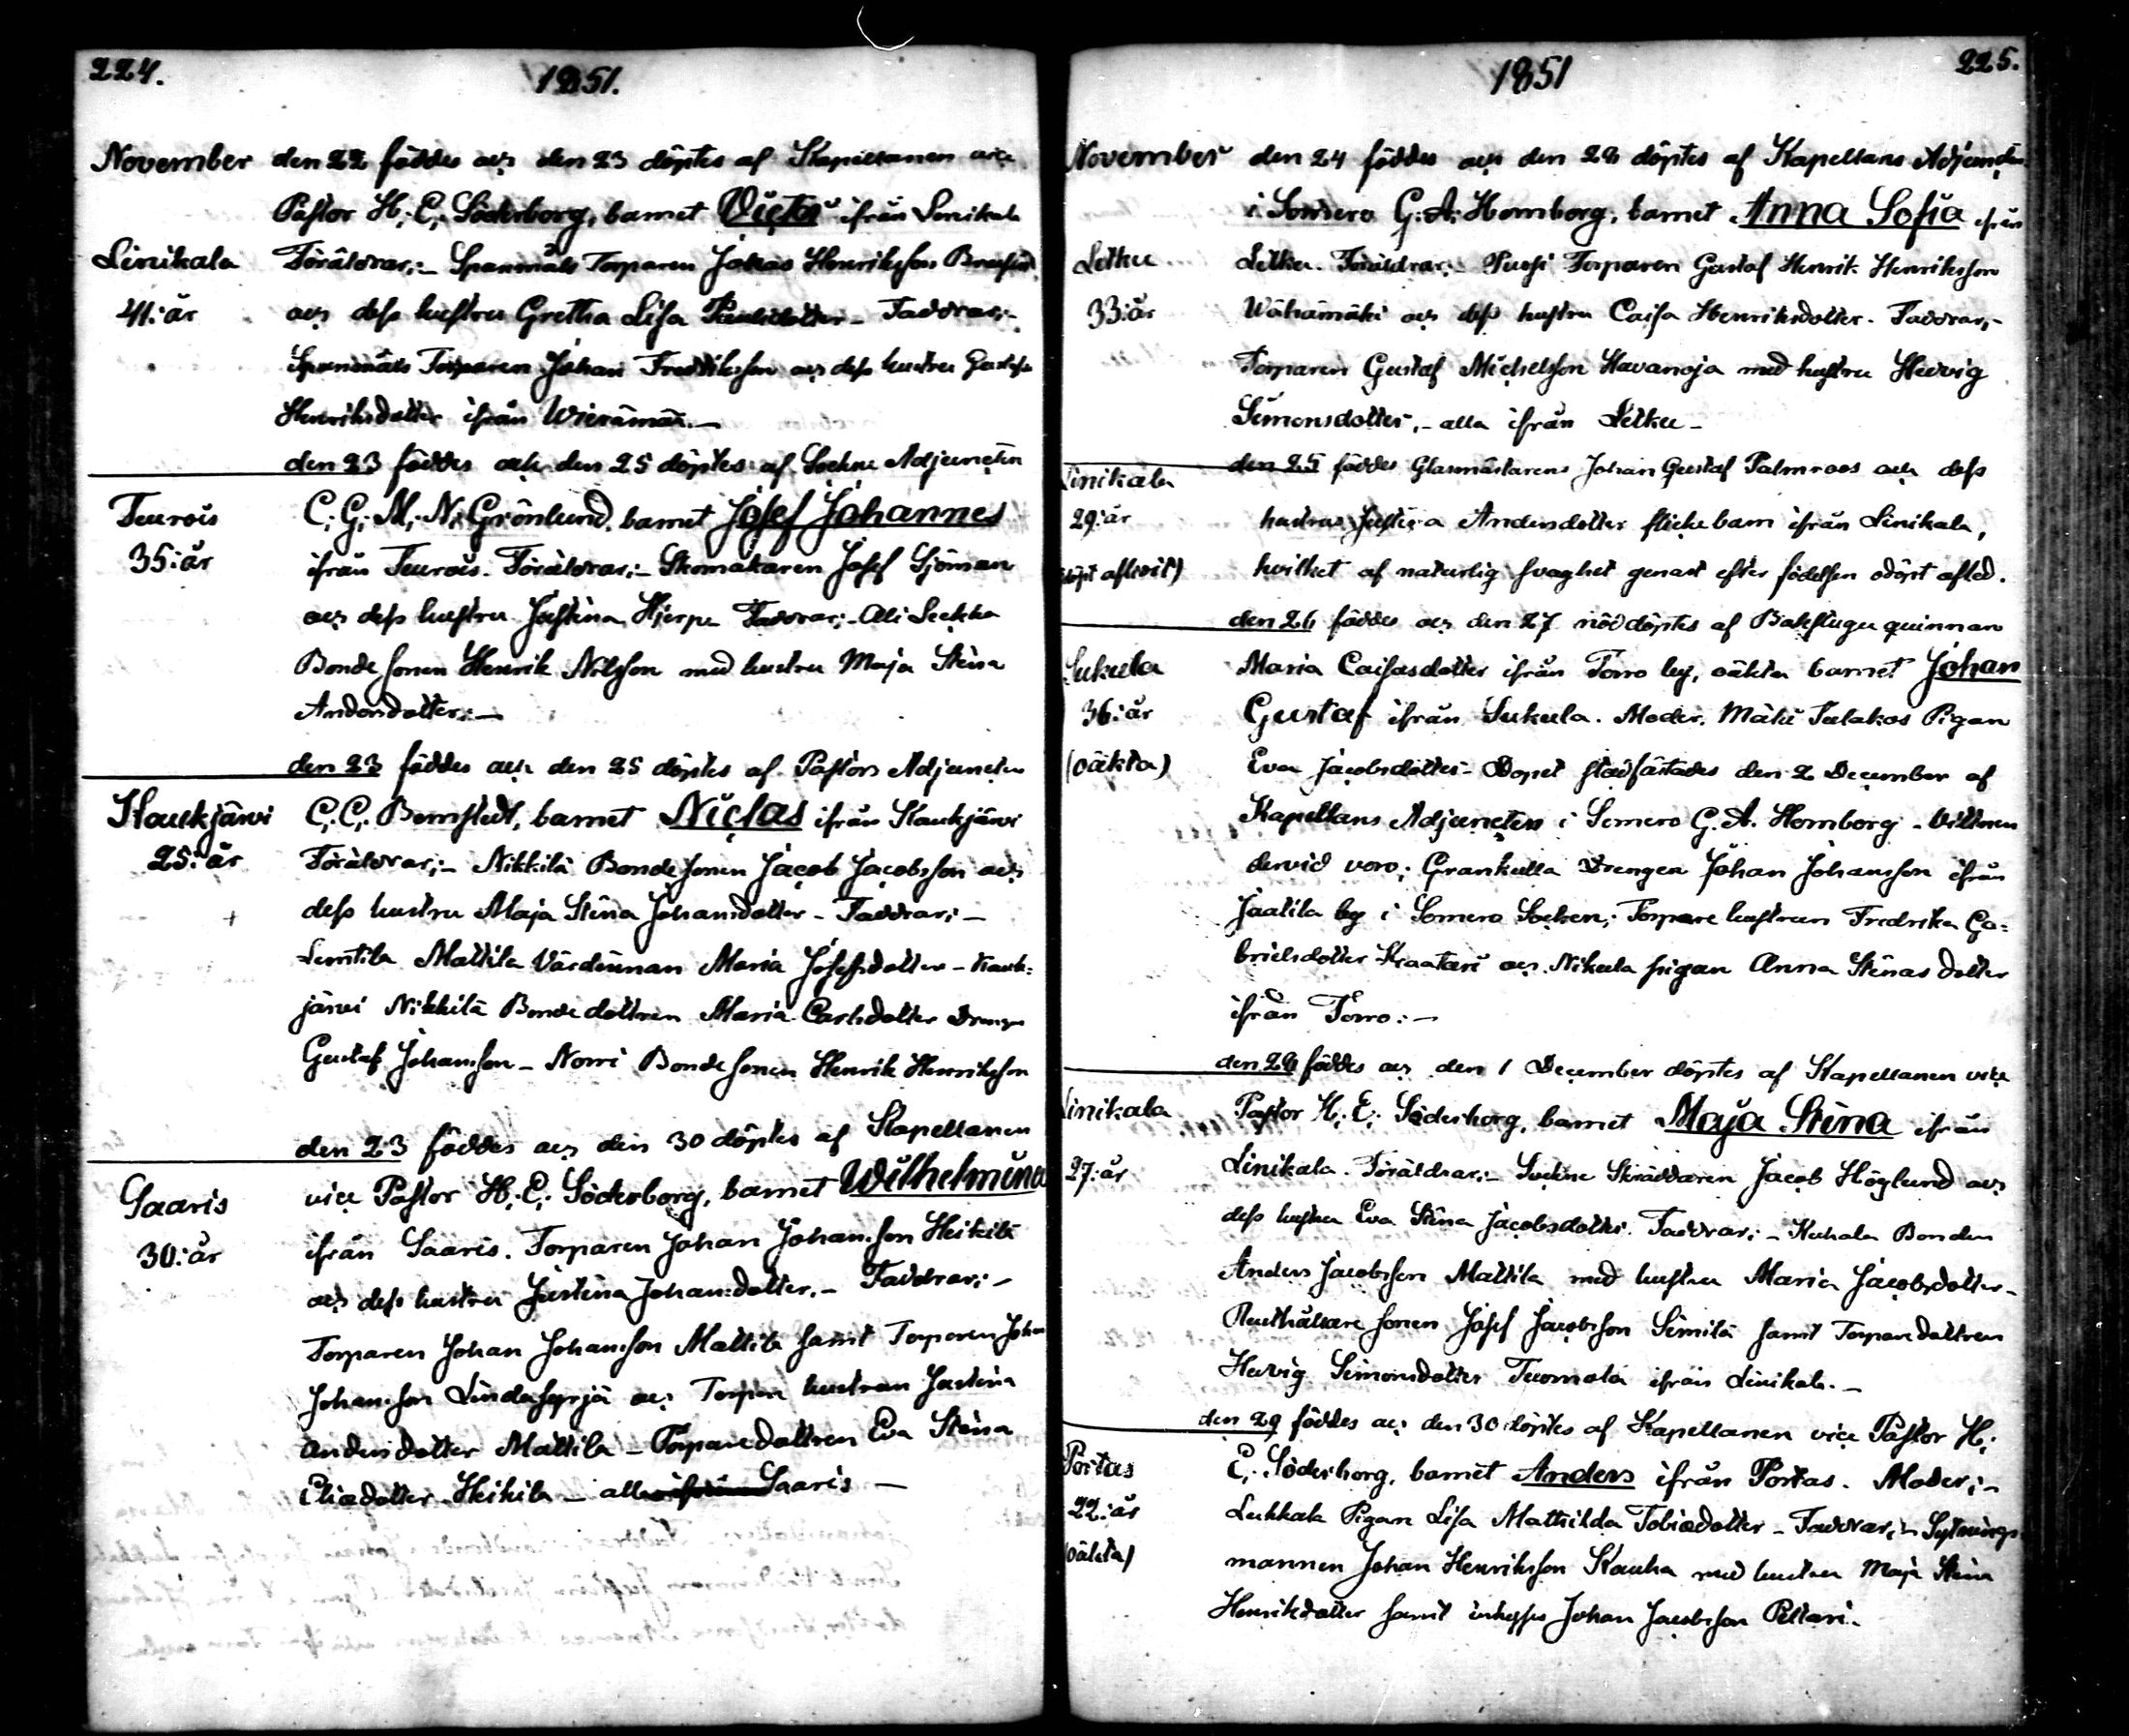 224.
1851.
November den 22 föddes och den 23 döptes af Kapellanen vice
Pastor H. E. Söderborg, barnet Victor ifrån Linikala
Linikala Föräldrar:- Spannmäls Torparen Johan Henriksson
41: år och dess hustru Gretha Lisa Faddrar:-
Torparen Johan Fredriksson och dess hustru
Henriksdotter ifrån Wieremää.-
den 23 föddes och den 25 döptes af Sockne Adjuncten
Teurois C. G. M. N. Grönlund, barnet Josef Johannes
35: år ifrån Teurois. Föräldrar:- Skomakaren Josef Sjöman
och dess hustru Justina Hjerpe Faddrar:-
Bonde sonen Henrik Nilsson med hustru Maja Stina
Andersdotter:-
den 23 föddes och den 25 döptes af Pastors Adjuncten
Kaukjärvi C. C. Bernstedt, barnet Niclas ifrån Kaukjärvi
25: år Föräldrar:- Nikkilä Bonde sonen Jacob Jacobsson och
+ dess hustru Maja Stina Johansdotter - Faddrar:-
Lemtilä Mattila Värdinnan Maria Josefsdotter - Kauk:
järvi Nikkilä Bonde dottren Maria Carlsdotter Drengen
Gustaf Johansson - Norri Bonde sonen Henrik Henriksson
den 23 föddes och den 30 döptes af Kapellanen
vice Pastor H. E. Söderborg, barnet Wilhelmina
Saaris ifrån Saaris. Torparen Johan Johansson Heikilä
30: år och dess hustru Justina Johansdotter.- Faddrar:-
Torparen Johan Johansson Mattila samt Torparen Johan
Johansson och Torpare hustrun Justina
Andersdotter Mattila - Torparedottren Eva Stina
Eliædotter Heikilä - alla ifrån Saaris -
225.
1851
November den 24 föddes och den 28 döptes af Kapellans Adjuncten
i Somero G. A. Homborg, barnet Anna Sofia ifrån
Letku Letku. Föräldrar:- Torparen Gustaf Henrik Henriksson
33: år Wähämäki och dess hustru Caisa Henriksdotter. Faddrar,-
Torparen Gustaf Michelsson Havanoja med hustru Hedvig
Simonsdotter,- alla ifrån Letku -
Linikala den 25 föddes Glasmästarens Johan Gustaf Palmroos och dess
29: år hustrus Justina Andersdotter flickebarn ifrån Linikala,
odöpt aflidit) hvilket af naturlig svaghet genast efter födelsen odöpt afled.
den 26 föddes och den 27 nöddöptes af Bakstugu quinnan
Sukula Maria Caisasdotter ifrån Torro by, oäkta barnet Johan
36: år Gustaf ifrån Sukula. Moder, Mäki Pigan
(oäkta) Eva Jacobsdotter - Dopet stadfästades den 2 December af
Kapellans Adjuncten i Somero G. A. Homborg - Vittnen
dervid voro; Grankulla Drengen Johan Johansson ifrån
Jaatila by i Somero Socken; Torpare hustrun Fredrika Ga=
brielsdotter Kraatari och Nikula pigan Anna Stinas dotter
ifrån Torro:-
den 28 föddes och den 1 December döptes af Kapellanen vice
Linikala Pastor H. E. Söderborg, barnet Maja Stina ifrån
27: år Linikala. Föräldrar:- Sockne Skräddaren Jacob Höglund och
dess hustru Eva Stina Jacobsdotter. Faddrar:- Kuhala Bonden
Anders Jacobsson Mattila med hustru Maria Jacobsdotter -
Rusthållare sonen Josef Jacobsson Simitä samt Torpare dottren
Hedvig Simonsdotter Tuomola ifrån Linikala.-
den 29 föddes och den 30 döptes af Kapellanen vice Pastor H.
Portas E. Söderborg, barnet Anders ifrån Portas. Moder:-
22: år Lukkala Pigan Lisa Mathilda Tobiædotter - Faddrar:- Sytnings
(oäkta) mannen Johan Henriksson Kauha med hustru Maja Stina
Henriksdotter samt inhyses Johan Jacobsson Peltari.